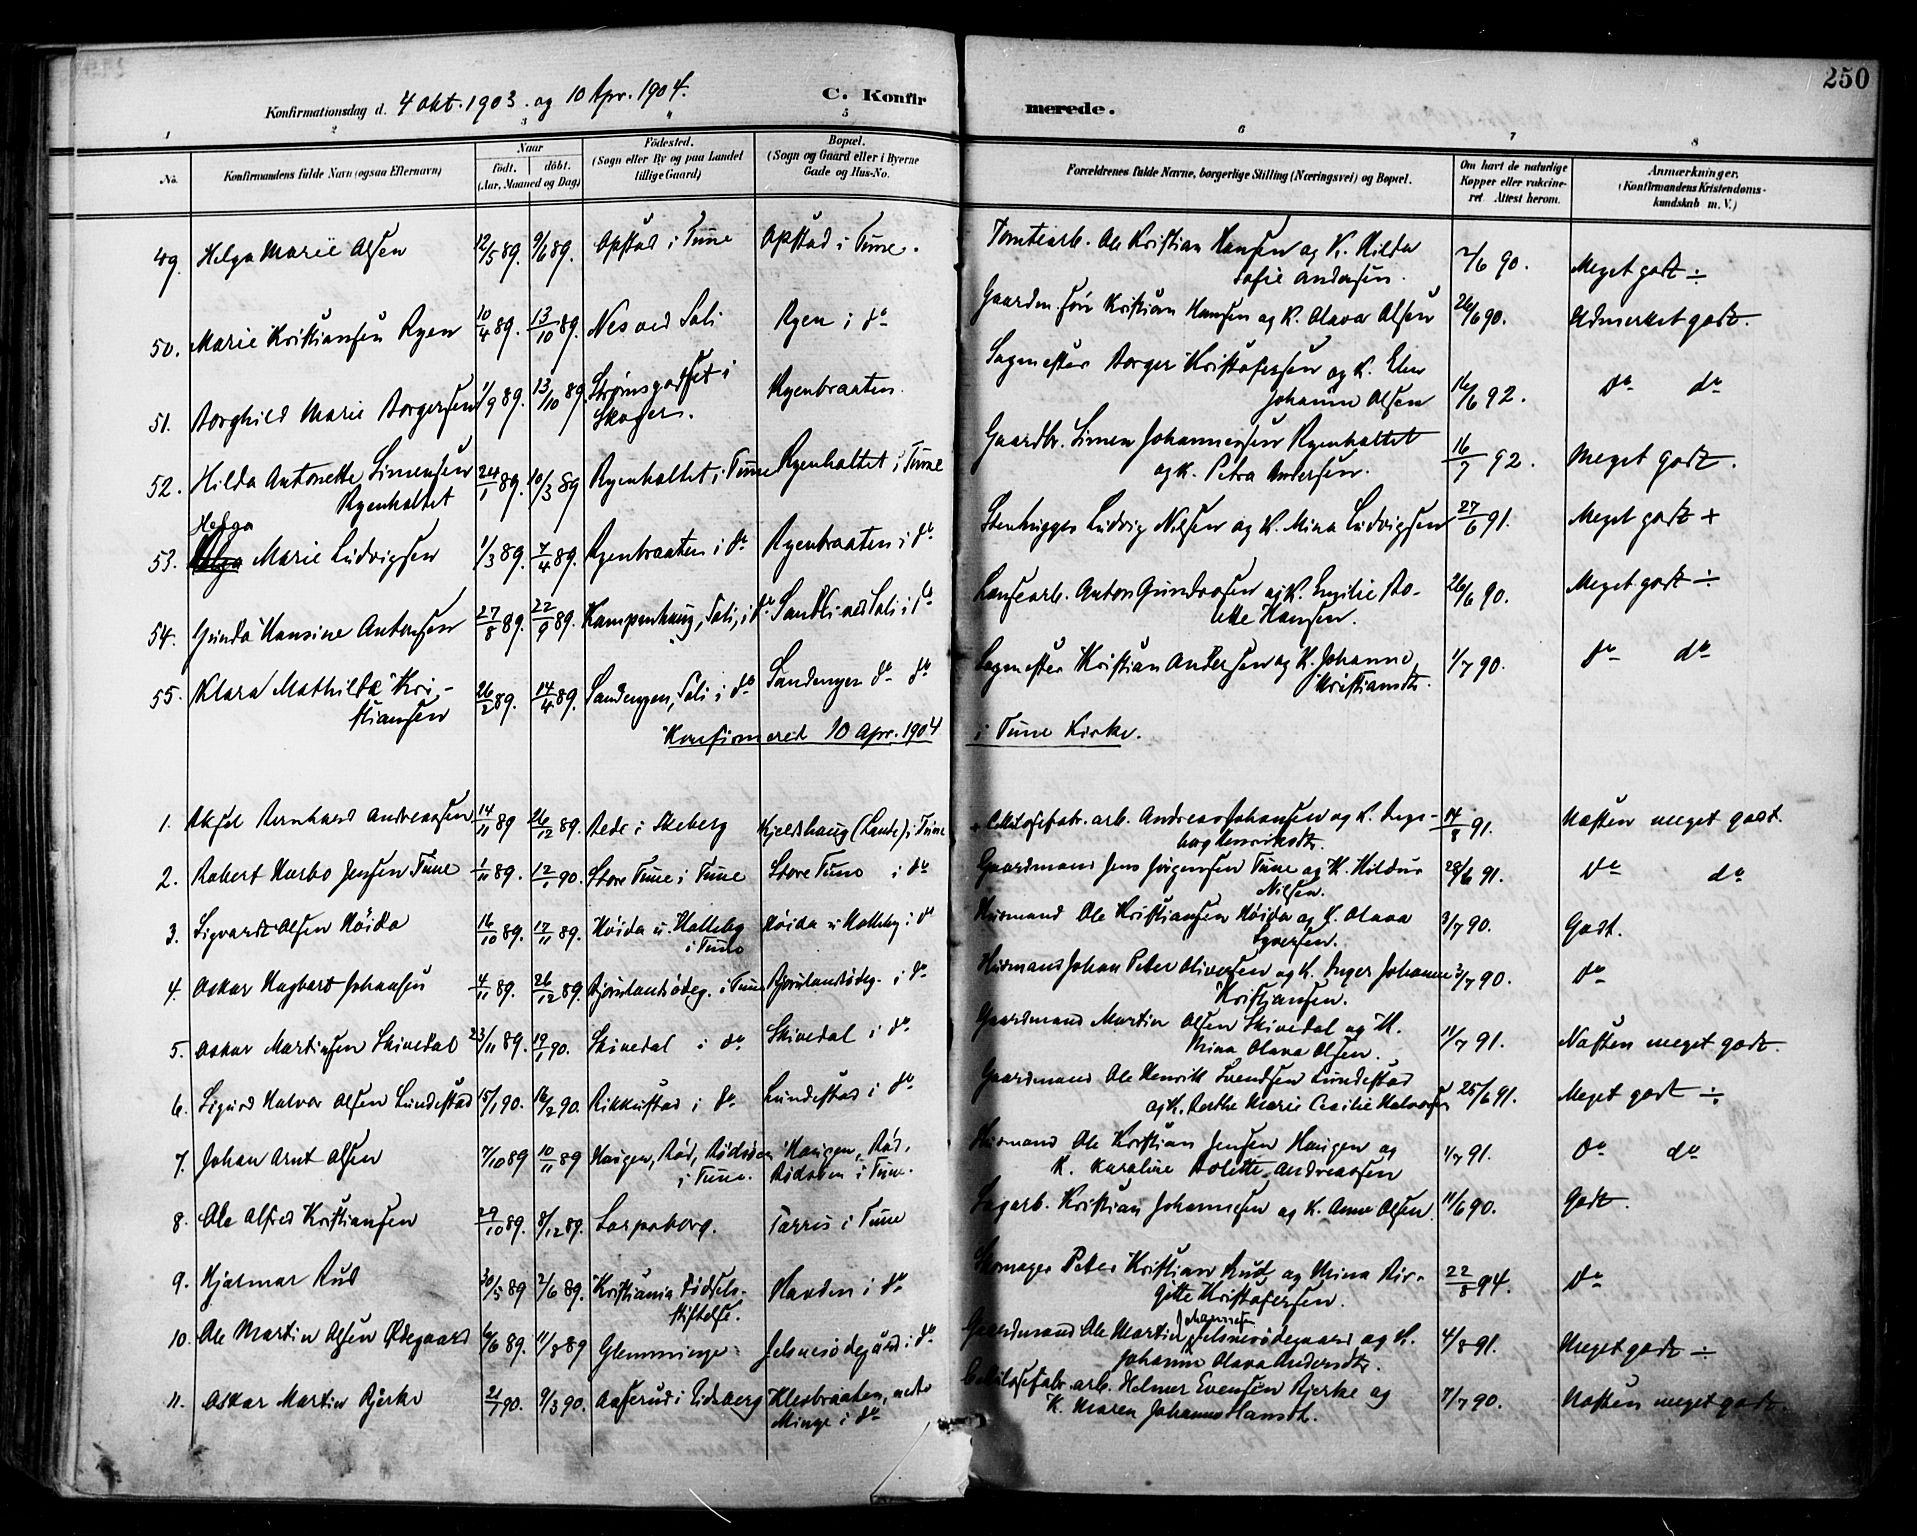 250
Konfirmationsdag d. 4 Okt. 1903. og 10 Apr. 1904. C. Konfirmerede.
1 2 3 4 5 6 7 8
No. Konfirmandens fulde Navn (ogsaa Efternavn) Naar født. døbt. (Aar, Maaned og Dag) Fødested. (Sogn eller By og paa Landet tillige Gaard) Bopæl. (Sogn og Gaard eller i Byerne Gade og Hus-No. Forældrenes fulde Navne, borgerlige Stilling (Næringsvei) og Bopæl. Om havt de naturlige Kopper eller vakcineret. Attest herom. Anmærkninger. (Konfirmandens Kristendomskundskab m. V.)
49. Helga Marie Olsen 12/5 89. 9/6 89. Opstad i Tune Opstad i Tune. Tomtearb. Ole Kristian Hansen og K. Hilda 2/6 90. Meget godt ÷
Sofie Andersen.
50. Marie Kristiansen Ryen 10/4 89. 13/10 89. Nes ved Soli Ryen i do Gaardm. Kristian Hansen og K. Olava Olsen 26/6 90. Udmerket godt.
51. Borghild Marie Borgersen 1/9 89. 13/10 89. Strømsgodset i Ryenbraaten. Sagmester Borger Kristofersen og K. Elen 16/6 92. do do
Skoger. Johanne Olsen
52. Hilda Antonette Simensen 24/1 89. 10/3 89 Ryenholtet i Tune Ryenholtet i Tune Gaardbr. Simen Johannessen Ryenholtet 16/7 92. Meget godt.
Ryenholtet og K. Petra Andersen.
Helga
53. Marie Ludvigsen 1/3 89. 7/4 89. Ryenbraaten i do Ryenbraaten i do Stenhugger Ludvig Nilsen og K. Mina Ludvigsen 27/6 91. Meget godt +
54. Gunda Hansine Antonsen 27/8 89. 22/9 89. Kampenhaug, Soli, i do Sandli ved Soli i do Lansearb. Anton Gundersen og K. Emilie Bo- 26/6 90. Meget godt ÷
lette Hansen.
55. Klara Mathilda Kri- 26/2 89. 14/4 89. Sandengen, Soli i do Sandengen do do Sagmester Kristian Andersen og K. Johanne 1/7 90. do do
stiansen Kristiansdt.
Konfirmered 10 Apr. 1904 i Tune Kirke.
1. Aksel Bernhard Andreassen 14/11 89 26/12 89. Rede i Skeberg Kjeldshaug (Lande) i Tune Cellulosefabr. arb. Andreas Johansen og K. Inge- 14/8 91. Næsten meget godt.
borg Henriksdt.
2. Robert Harbo Jensen Tune 1/11 89. 12/1 90. Store Tune i Tune Store Tune i do Gaardmand Jens Jørgensen Tune og K. Hildur 28/6 91. do do
Nilsen.
3. Sigvardt Olsen Høida 16/10 89. 17/11 89. Høida u. Hatteby Høida u Hatteby i do Husmand Ole Kristiansen Høida og K. Olava 3/7 90. Godt.
i Tune Syversen.
4. Oskar Hagbart Johansen 4/11 89. 26/12 89. Bjørnlandsødeg. i Tune Bjørnlandsødeg. i do Husmand Johan Peter Oliversen og K. Inger Johanne 3/7 90. do
Kristiansen.
5. Oskar Martinsen Skivedal 23/11 89. 19/1 90. Skivedal i do Skivedal i do Gaardmand Martin Olsen Skivedal og K. 11/7 91. Næsten meget godt.
Mina Olava Olsen.
6. Sigurd Halvor Olsen Lundestad 15/1 90. 16/2 90. Rikkustad i do Lundestad i do Gaardmand Ole Henrik Svendsen Lundestad 25/6 91. Meget godt ÷
og K. Berthe Marie Cecilie Halvorsen
7. Johan Arnt Olsen 7/10 89 10/11 89 Haugen, Rød, Rødsøen Haugen, Rød, Husmand Ole Kristian Jensen Haugen og 1/7 91. do do
i Tune. Rødsøen i Tune. K. Karoline Bolette Andreassen
8. Ole Alfred Kristiansen 29/10 89. 8/12 89. Sarpsborg. Tarris i Tune Sagarb. Kristian Johannesen og K. Anne Olsen. 11/6 90. Godt.
9. Hjalmar Rud 30/5 89 2/6 89. Kristiania Fødsels- Navden i do Skomager Peter Kristian Rud og Mina Bir- 22/8 94. do
stiftelse. gitte Kristofersen.
10. Ole Martin Olsen Ødegaard 6/6 89. 11/8 89 Glemminge Jelsnesødegård i do Gaardmand Ole Martin Johannesen Jelsnesødegaard og K. 4/8 91. Meget godt ÷
Johanne Olava Andersdt.
11. Oskar Martin Bjerke 21/1 90. 9/3 90. Aaserud i Eidsberg Klesbraaten, nedre Cellulosefabr. arb. Helmer Evensen Bjerke og 7/7 90. Næsten meget godt.
Minge i do K. Maren Johanne Hansdt.